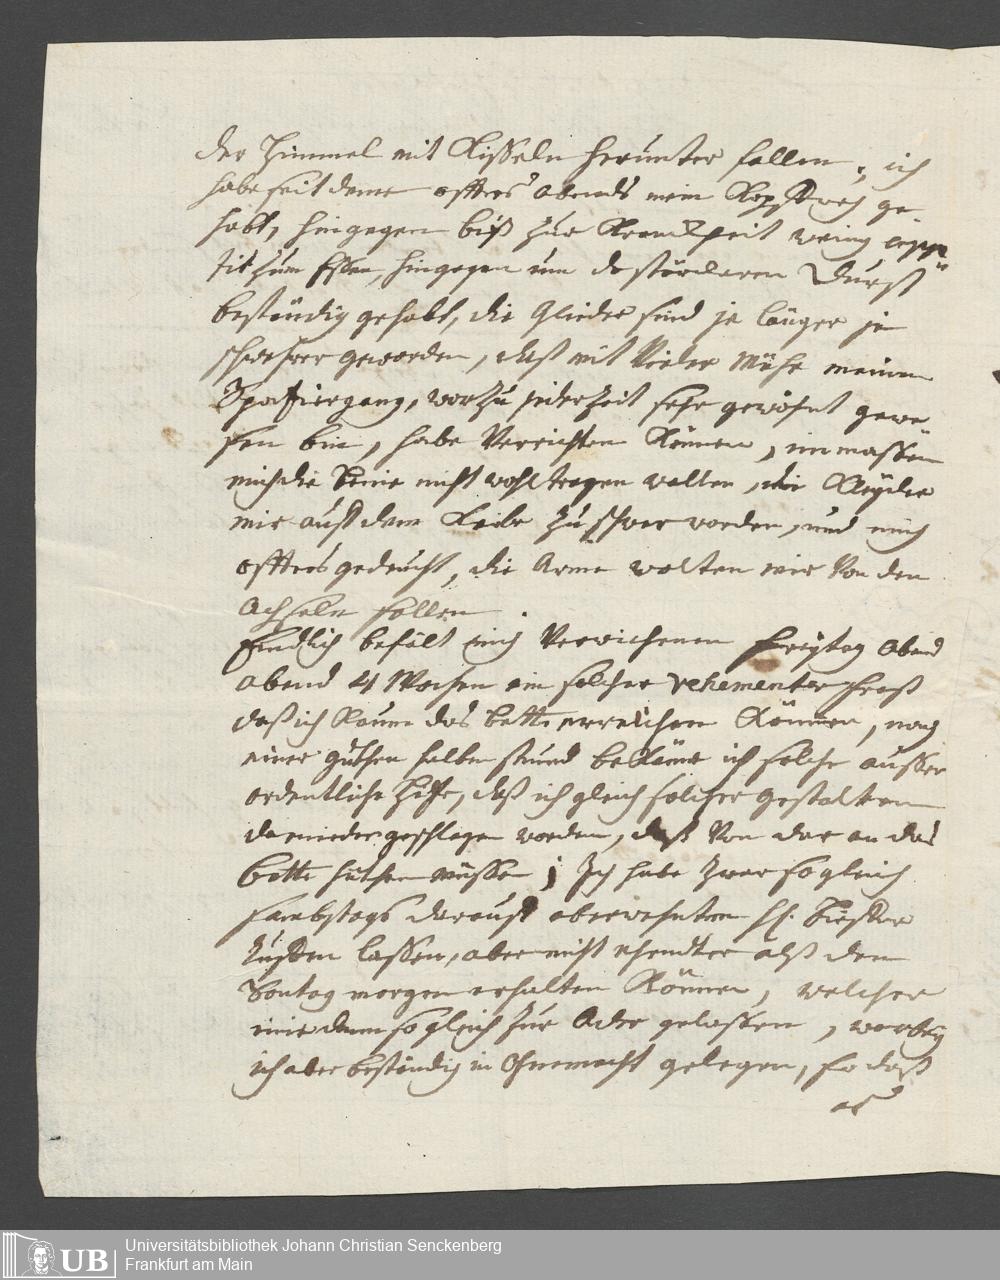 der Himmel mit Kisseln herunter fallen; ich
habe seit deme offters abends mein Kopffweh ge-
habt, hingegen biß zur Kranckheit wenig appe-
tit zum Essen, hingegen um so stärckeren Durst
beständig gehabt, die Glieder sind je länger je
schwehrer geworden, daß mit vieler Mühe meinen
Spatziergang, worzu jederzeit sehr gewöhnt gewe-
sen bin, habe verrichten können, immassen
mich die Beine nicht wohl tragen wolten, die Kleyder
mir auff dem Leibe zu schwer worden, und mich
offters gedeucht, die Arme wolten mir von den
Achseln fallen.
Endlich befält mich verwichenen Freytag Abend
abend 4 Wochen ein solcher vehementer Frost
daß ich kaum das bette erreichen können, nach
einer guthen halben stund bekame ich solche ausser
ordentliche Hitze, daß ich gleich solcher gestalten
darnieder geschlagen worden, daß von dar an das
bette hüthen müssen; Ich habe zwar sogleich
sambstags darauff oberwehnten H.
ruffen lassen, aber nicht ehender alß den
Sontag morgen erhalten können, welcher
mir dann sogleich zur Ader gelassen, worbey
ich aber beständig in Ohnmacht gelegen, so daß
es
UB Universitätsbibliothek Johann Christian Senckenberg
Frankfurt am Main